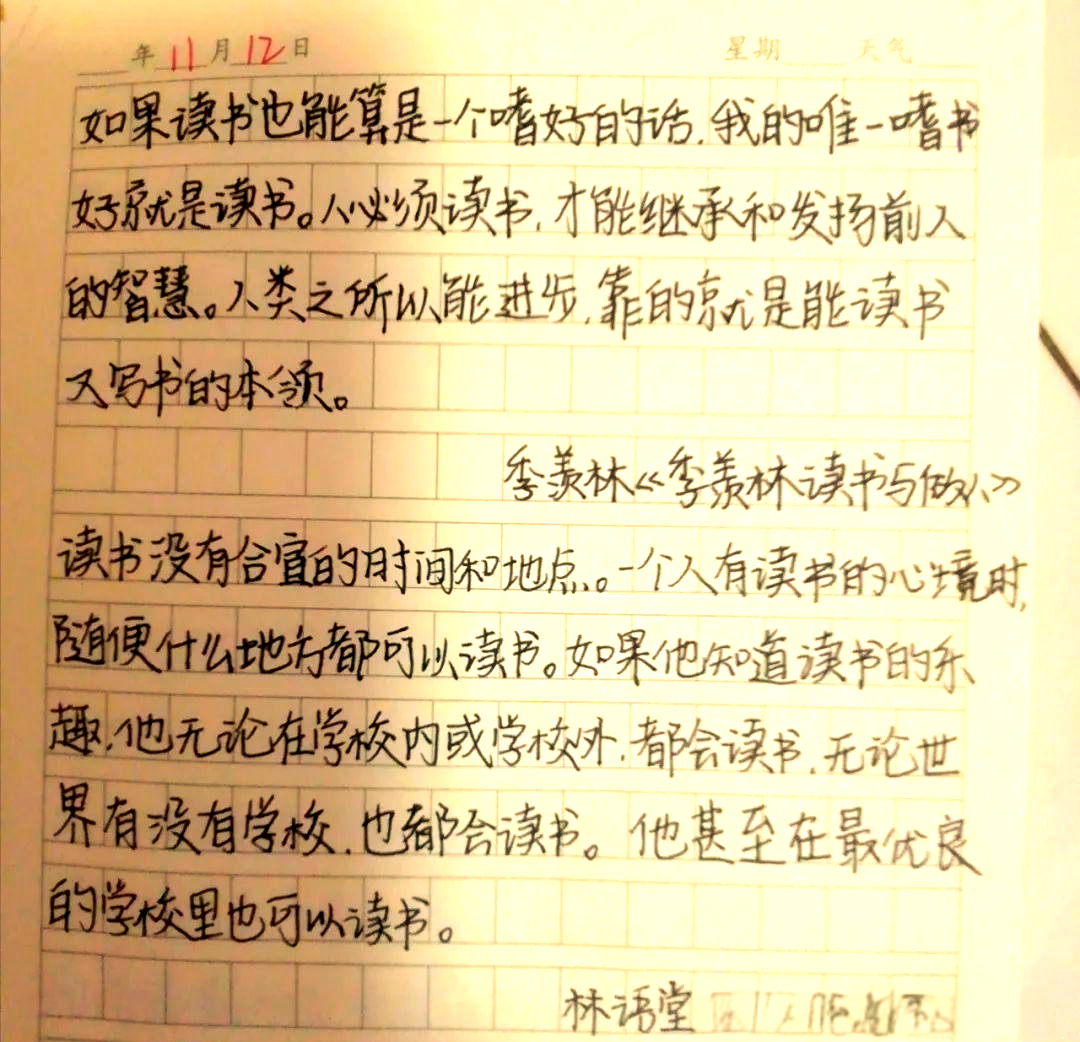 年11月12日 星期 天气
如果读书也能算是一个嗜好的话,我的唯一嗜书
好就是读书。人必须读书,才能继承和发扬前入
的智慧。人类之所以能进步,靠的就是能读书
又写书的本领。
季羡林《季羡林读书与做人》
读书没有合宜的时间和地点。一个人有读书的心境时,
随便什么地方都可以读书。如果他知道读书的乐
趣,他无论在学校内或学校外,都会读书,无论世
界有没有学校,也都会读书。他甚至在最优良
的学校里也可以读书。
林语堂